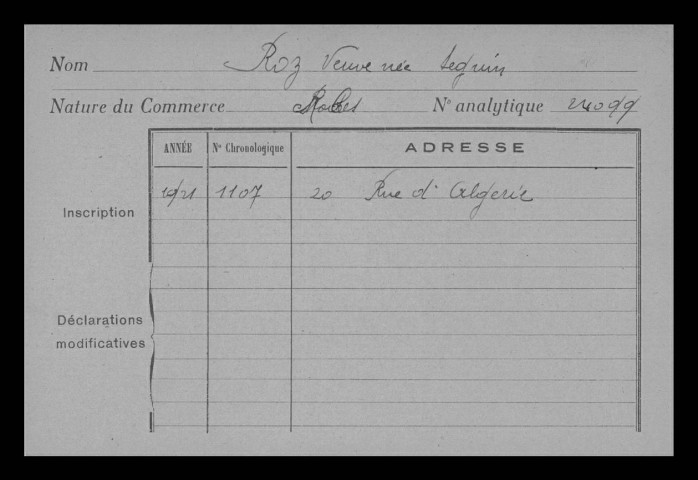 Nom Roz Veuve née Seguin
Nature du Commerce Robes N° analytique 24099
ANNÉE N° Chronologique ADRESSE
Inscription 1921 1107 20 Rue d'Algerie
Déclarations
modificatives